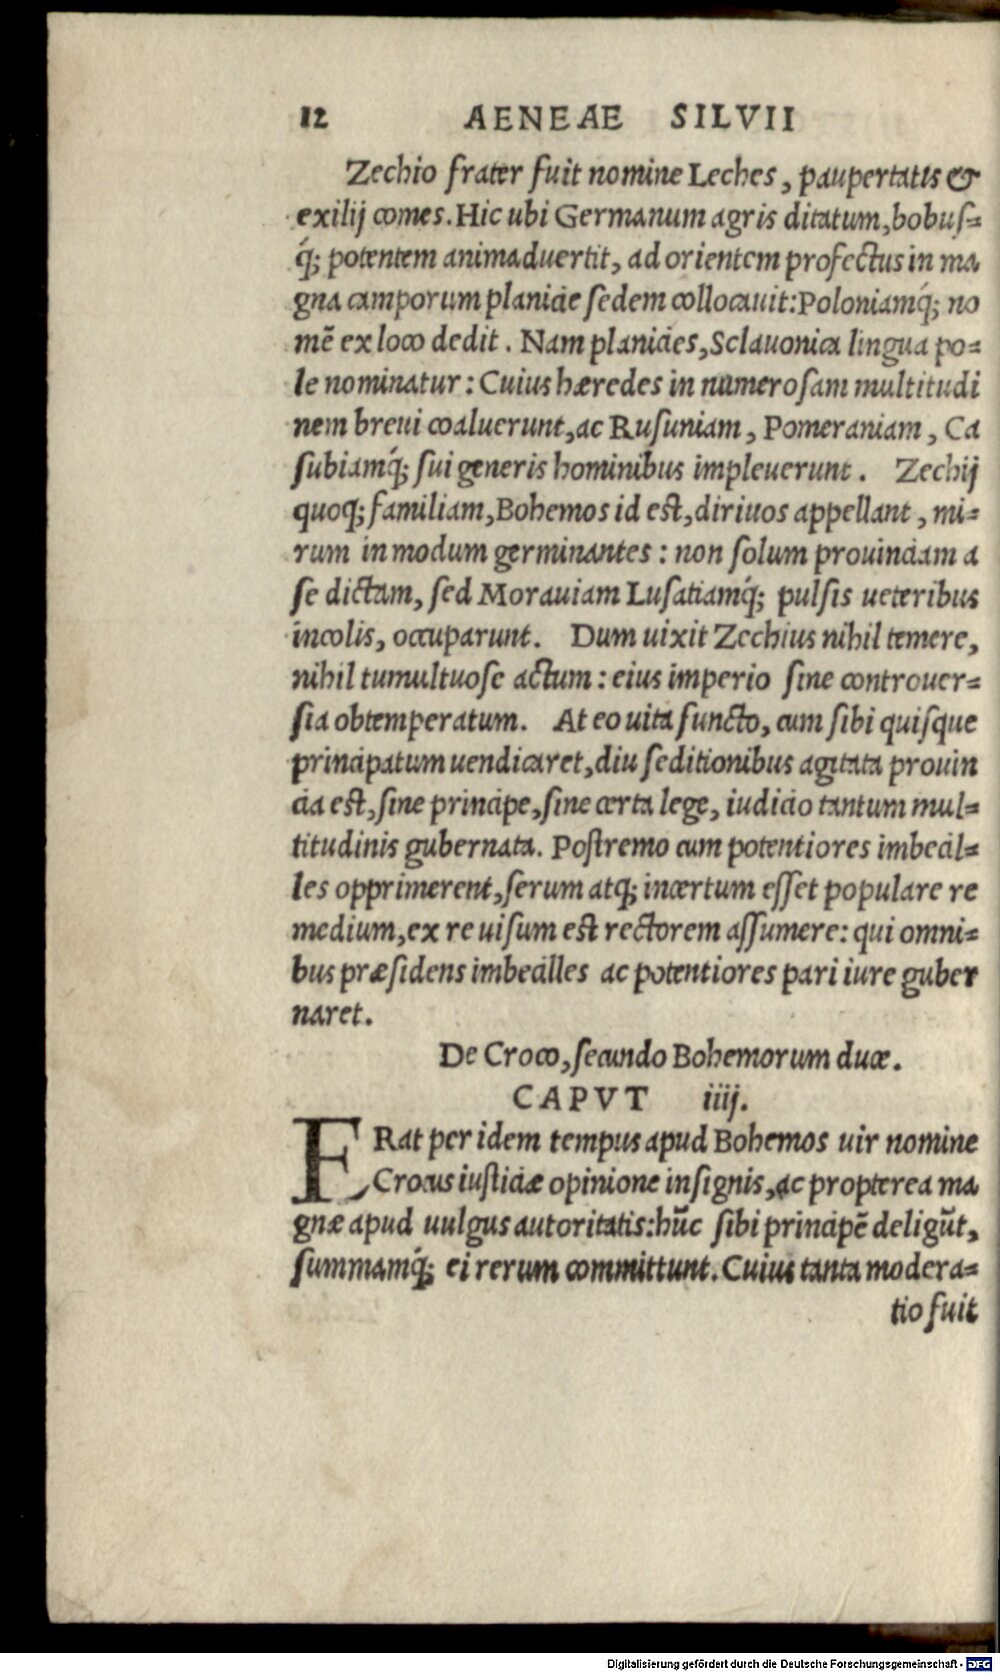 12 AENEAE SILVII
Zechio frater fuit nomine Leches, paupertatis &
exilij comes. Hic ubi Germanum agris ditatum, bobuſ=
q́; potentem animaduertit, ad orientem profectus in ma
gna camporum planicie ſedem collocauit: Poloniamq́; no
mẽ ex loco dedit. Nam planicies, Sclauonica lingua po=
le nominatur: Cuius hæredes in numeroſam multitudi
nem breui coaluerunt, ac Ruſuniam, Pomeraniam, Ca
ſubiamq́; ſui generis hominibus impleuerunt. Zechij
quoq; familiam, Bohemos id eſt, diriuos appellant, mi=
rum in modum germinantes: non ſolum prouinciam a
ſe dictam, ſed Morauiam Luſatiamq́; pulſis ueteribus
incolis, occuparunt. Dum uixit Zechius nihil temere,
nihil tumultuoſe actum: eius imperio ſine controuer=
ſia obtemperatum. At eo uita functo, cum ſibi quiſque
principatum uendicaret, diu ſeditionibus agitata prouin
cia eſt, ſine principe, ſine certa lege, iudicio tantum mul=
titudinis gubernata. Poſtremo cum potentiores imbecil=
les opprimerent, ſerum atq; incertum eſſet populare re
medium, ex re uiſum eſt rectorem aſſumere: qui omni=
bus præſidens imbecilles ac potentiores pari iure guber
naret.
De Croco, ſecundo Bohemorum duce.
CAPVT iiij.
ERat per idem tempus apud Bohemos uir nomine
Crocus iuſticiæ opinione inſignis, ac propterea ma
gnæ apud uulgus autoritatis: hũc ſibi principẽ deligũt,
ſummamq́; ei rerum committunt. Cuius tanta modera=
tio fuit
Digitalisierung gefördert durch die Deutsche Forschungsgemeinschaft - DFG